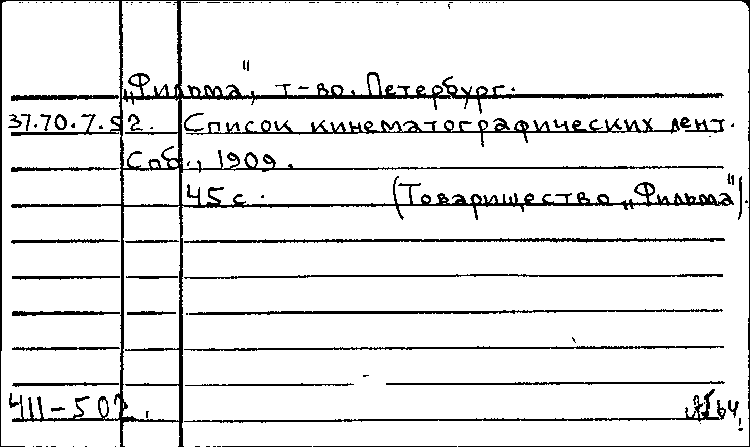 „Фильма", т-во. Петербург.
37.70.7.52. Список кинематографических лент.
Спб., 1909.
45 с. (Товарищество „Фильма").
Ч11-502.